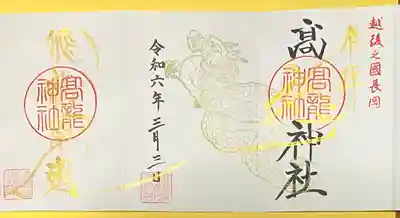 越後之國長岡
奉拝
髙神社
髙龍
神社
令和六年 三月三日
髙龍
神社